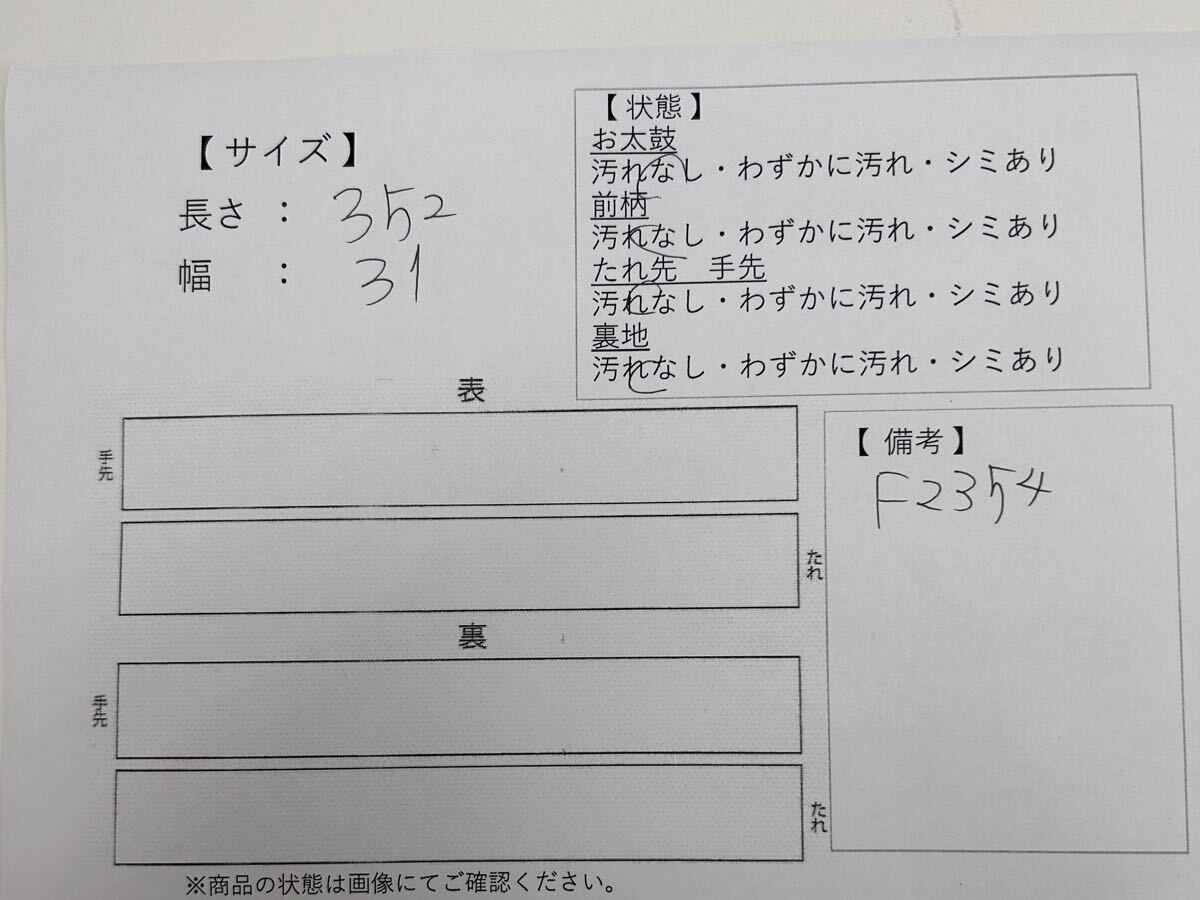 【サイズ】
長さ : 352
幅 : 31
【状態】
お太鼓
汚れなし・わずかに汚れ・シミあり
前柄
汚れなし・わずかに汚れ・シミあり
たれ先 手先
汚れなし・わずかに汚れ・シミあり
裏地
汚れなし・わずかに汚れ・シミあり
表
手先
たれ
裏
手先
たれ
【備考】
F2354
※商品の状態は画像にてご確認ください。